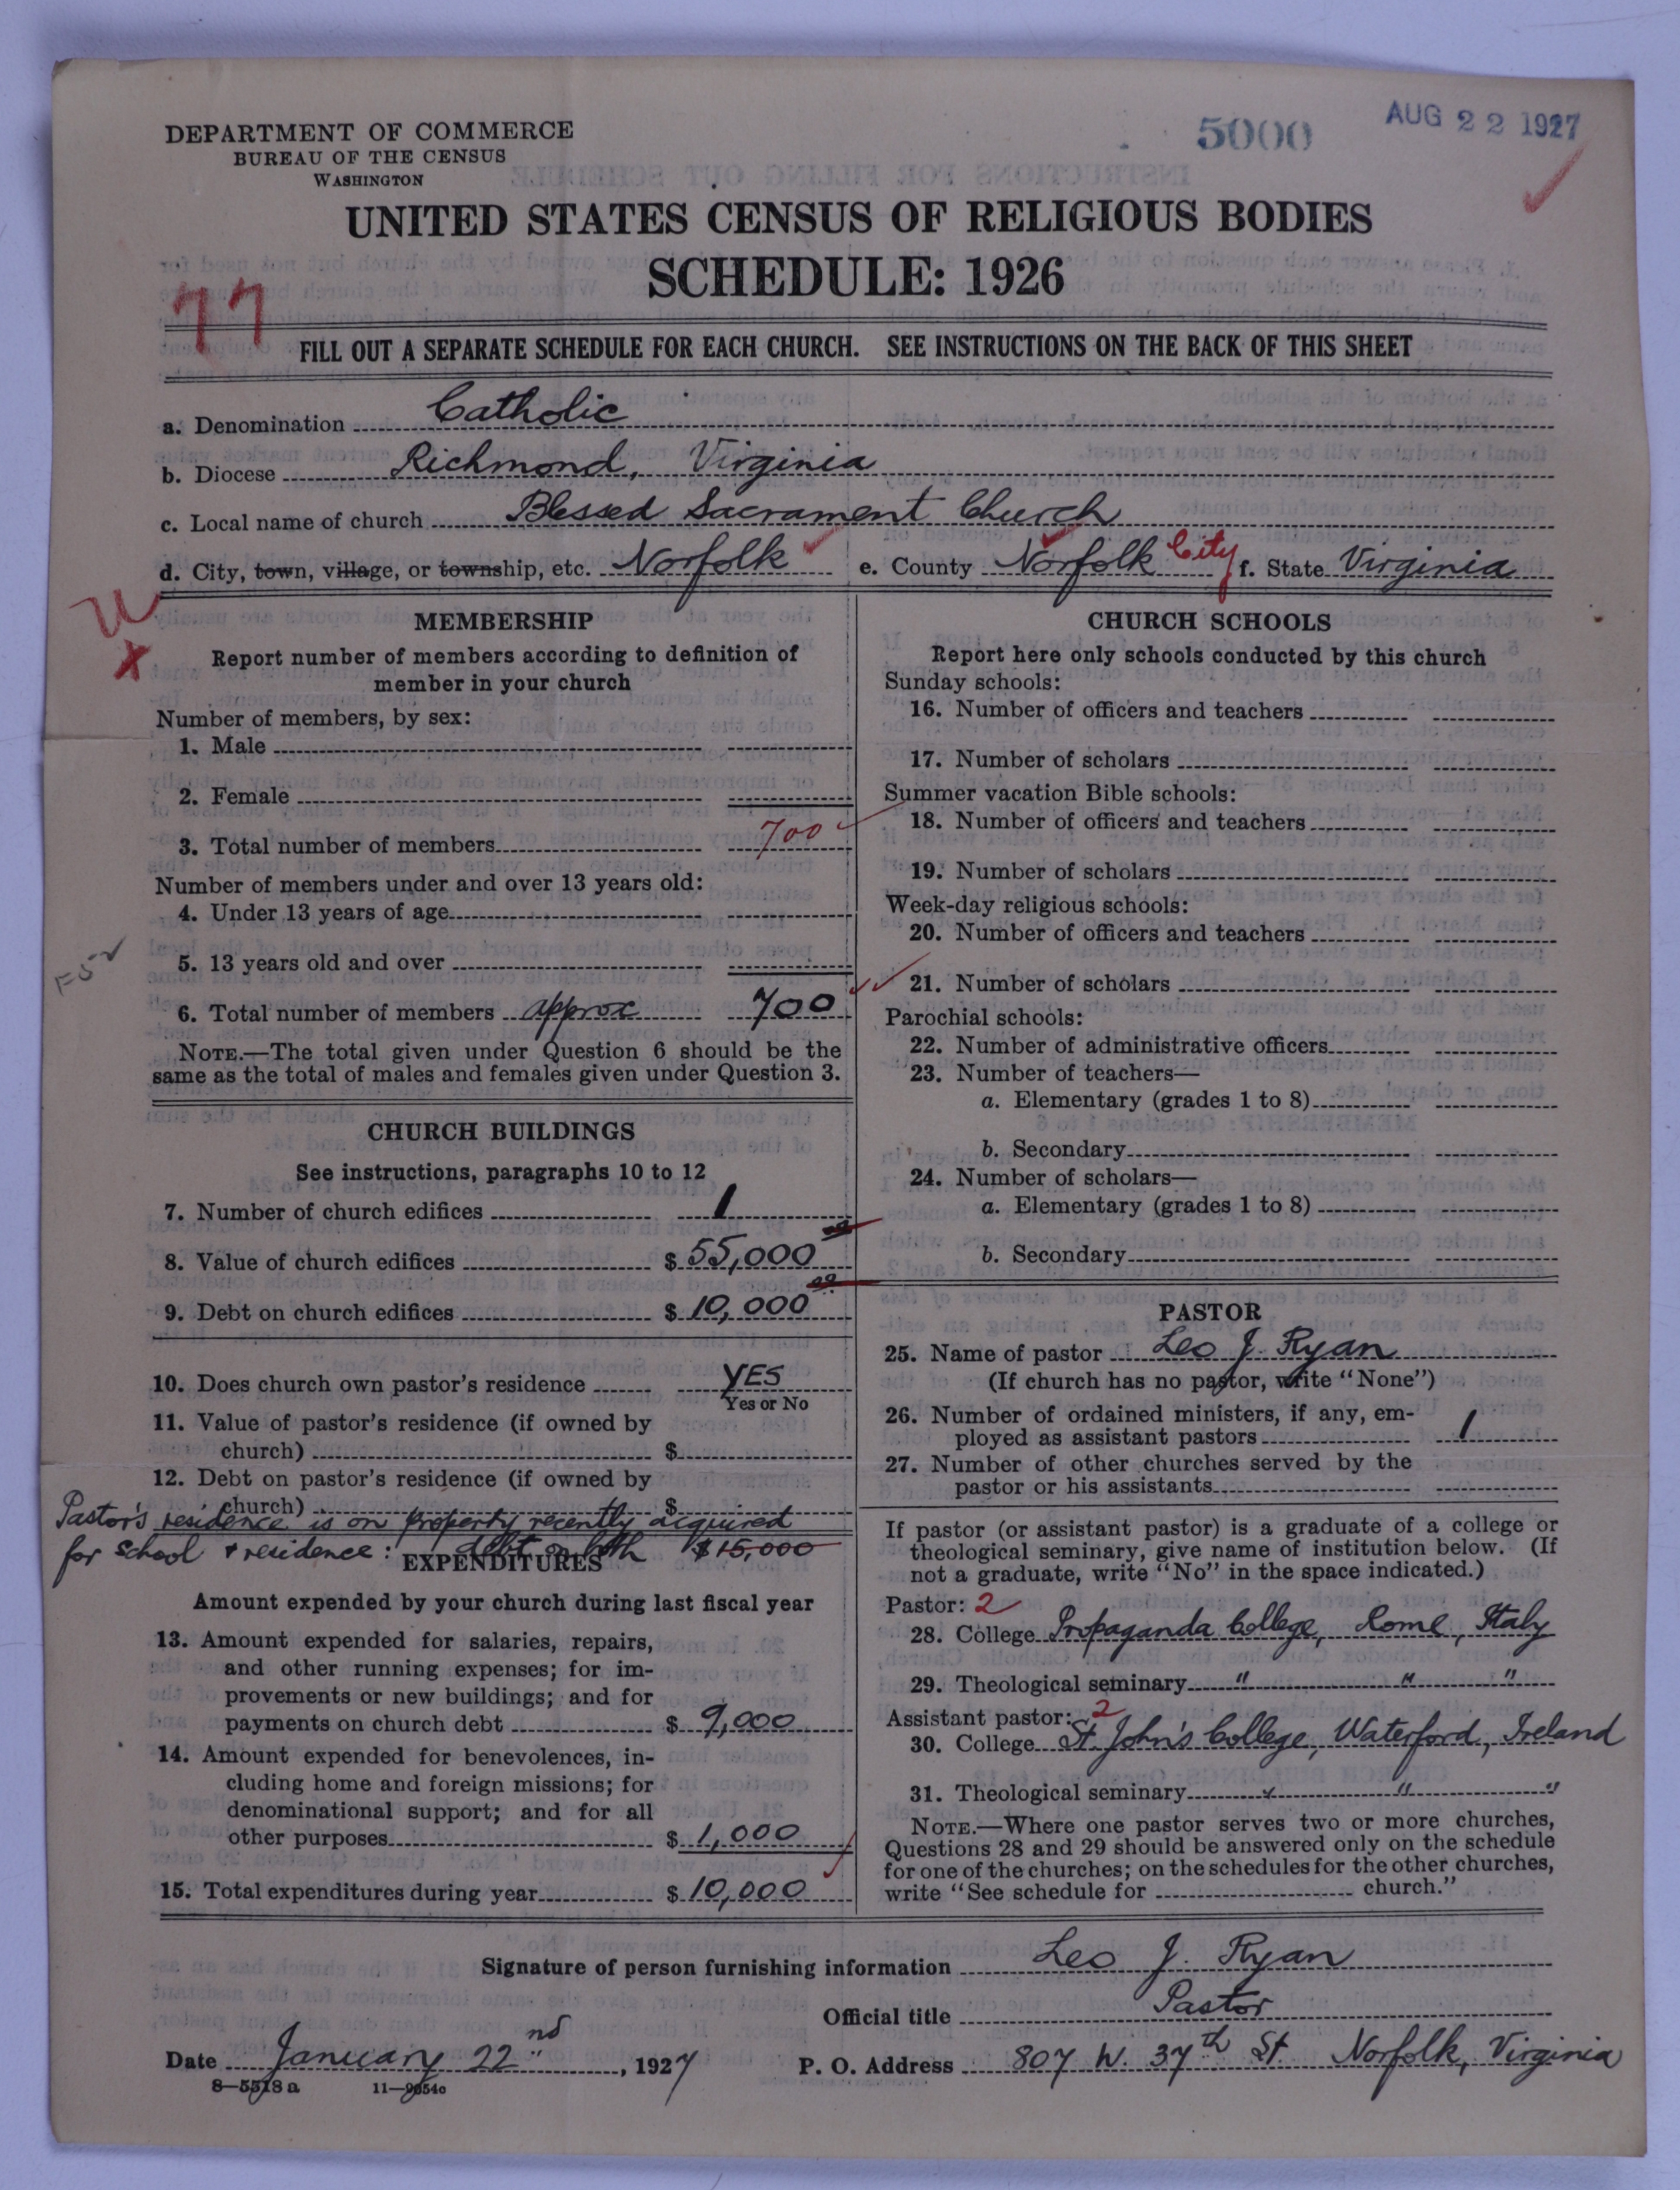 DEPARTMENT OF COMMERCE
BUREAU OF THE CENSUS
WASHINGTON
5000
AUG 22 1927
UNITED STATES CENSUS OF RELIGIOUS BODIES
SCHEDULE: 1926
77
FILL OUT A SEPARATE SCHEDULE FOR EACH CHURCH. SEE INSTRUCTIONS ON THE BACK OF THIS SHEET
a. Denomination Catholic
b. Diocese Richmond, Virginia
c. Local name of church Blessed Sacrament Church
d. City, town, village, or township, etc. Norfolk e. County Norfolk City f. State Virginia
MEMBERSHIP
Report number of members according to definition of
member in your church
Number of members, by sex:
1. Male
2. Female
3. Total number of members 700
Number of members under and over 13 years old:
4. Under 13 years of age
5. 13 years old and over
6. Total number of members approx 700
NOTE.—The total given under Question 6 should be the
same as the total of males and females given under Question 3.
CHURCH BUILDINGS
See instructions, paragraphs 10 to 12
7. Number of church edifices 1
8. Value of church edifices $ 55,000
9. Debt on church edifices $ 10,000
10. Does church own pastor's residence YES
Yes or No
11. Value of pastor's residence (if owned by
church) $
12. Debt on pastor's residence (if owned by
church) $
Pastor's residence is on property recently acquired
for school & residence: debt on both $15,000
EXPENDITURES
Amount expended by your church during last fiscal year
13. Amount expended for salaries, repairs,
and other running expenses; for im-
provements or new buildings; and for
payments on church debt $ 9,000
14. Amount expended for benevolences, in-
cluding home and foreign missions; for
denominational support; and for all
other purposes $ 1,000
15. Total expenditures during year $ 10,000
CHURCH SCHOOLS
Report here only schools conducted by this church
Sunday schools:
16. Number of officers and teachers
17. Number of scholars
Summer vacation Bible schools:
18. Number of officers and teachers
19. Number of scholars
Week-day religious schools:
20. Number of officers and teachers
21. Number of scholars
Parochial schools:
22. Number of administrative officers
23. Number of teachers—
a. Elementary (grades 1 to 8)
b. Secondary
24. Number of scholars—
a. Elementary (grades 1 to 8)
b. Secondary
PASTOR
25. Name of pastor Leo J. Ryan
(If church has no pastor, write "None")
26. Number of ordained ministers, if any, em-
ployed as assistant pastors 1
27. Number of other churches served by the
pastor or his assistants
If pastor (or assistant pastor) is a graduate of a college or
theological seminary, give name of institution below. (If
not a graduate, write "No" in the space indicated.)
Pastor: 2
28. College Propaganda College, Rome, Italy
29. Theological seminary " " "
Assistant pastor: 2
30. College St. John's College, Waterford, Ireland
31. Theological seminary " " "
NOTE.—Where one pastor serves two or more churches,
Questions 28 and 29 should be answered only on the schedule
for one of the churches; on the schedules for the other churches,
write "See schedule for church."
Signature of person furnishing information Leo J. Ryan
Official title Pastor
Date January 22nd, 1927 P. O. Address 807 W. 37th St. Norfolk, Virginia
8—5518 a 11—9054c